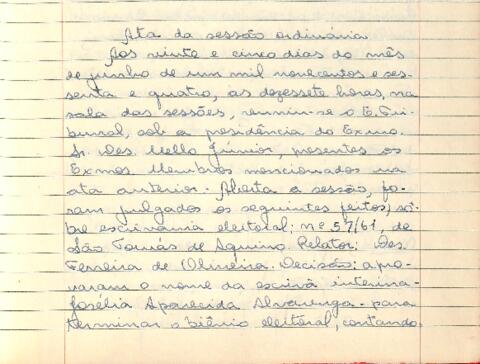 Ata da sessão ordinária
Aos vinte e cinco dias do mês
de junho de um mil novecentos e ses-
senta e quatro, às dezessete horas, na
sala das sessões, reuniu-se o E. Tri-
bunal, sob a presidência do Exmo.
Sr. Des. Mello Júnior, presentes os
Exmos. Membros mencionados na
ata anterior. Aberta a sessão, fo-
ram julgados os seguintes feitos, sô-
bre escrivania eleitoral: nº 57/61, de
São Tomás de Aquino. Relator: Des.
Ferreira de Oliveira. Decisão: apro-
varam o nome da escrivã interina
Josélia Aparecida Alvarenga para
terminar o biênio eleitoral, contando.